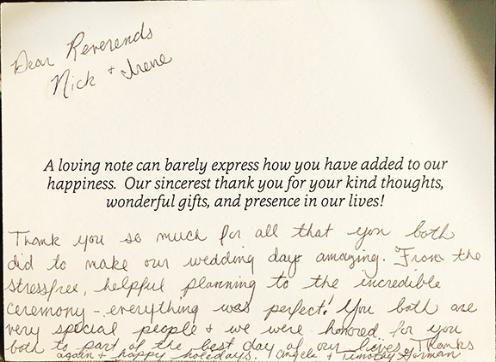 Dear Reverends
Nick + Irene
A loving note can barely express how you have added to our
happiness. Our sincerest thank you for your kind thoughts,
wonderful gifts, and presence in our lives!
Thank you so much for all that you both
did to make our wedding day amazing. From the
stressfree, helpful planning to the incredible
ceremony - everything was perfect! You both are
very special people & we were honored for you
both to part of the best day of our lives! Thanks
again & happy holidays! Timothy